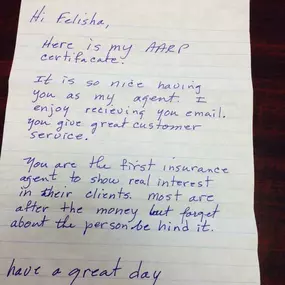 Hi Felisha,
Here is my AARP
certifacate.
It is so nice having
you as my agent. I
enjoy recieving you email.
you give great customer
service.
You are the first insurance
agent to show real interest
in their clients. most are
after the money but forget
about the person be hind it.
have a great day